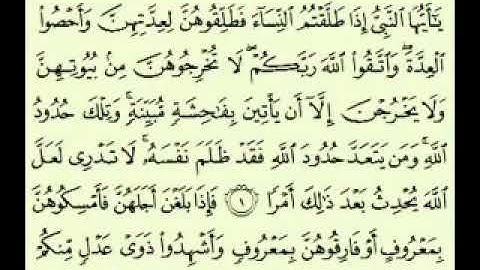 يَٰٓأَيُّهَا ٱلنَّبِىُّ إِذَا طَلَّقْتُمُ ٱلنِّسَآءَ فَطَلِّقُوهُنَّ لِعِدَّتِهِنَّ وَأَحْصُوا۟
ٱلْعِدَّةَ ۖ وَٱتَّقُوا۟ ٱللَّهَ رَبَّكُمْ ۖ لَا تُخْرِجُوهُنَّ مِنۢ بُيُوتِهِنَّ
وَلَا يَخْرُجْنَ إِلَّآ أَن يَأْتِينَ بِفَٰحِشَةٍ مُّبَيِّنَةٍ ۚ وَتِلْكَ حُدُودُ
ٱللَّهِ ۚ وَمَن يَتَعَدَّ حُدُودَ ٱللَّهِ فَقَدْ ظَلَمَ نَفْسَهُۥ ۚ لَا تَدْرِى لَعَلَّ
ٱللَّهَ يُحْدِثُ بَعْدَ ذَٰلِكَ أَمْرًا ١ فَإِذَا بَلَغْنَ أَجَلَهُنَّ فَأَمْسِكُوهُنَّ
بِمَعْرُوفٍ أَوْ فَارِقُوهُنَّ بِمَعْرُوفٍ وَأَشْهِدُوا۟ ذَوَىْ عَدْلٍ مِّنكُمْ